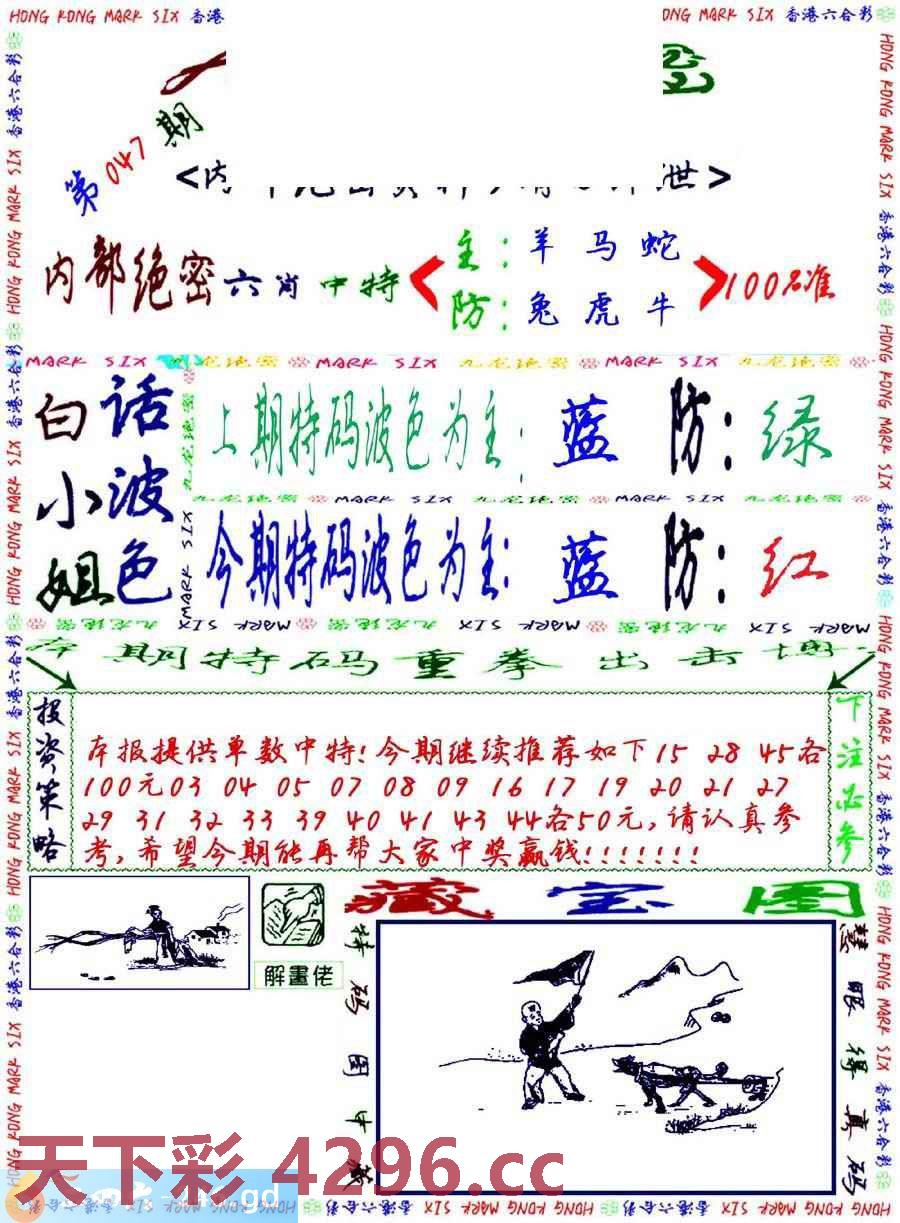 HONG KONG MARK SIX 香港
ONG MARK SIX 香港六合彩
第047期
<内
泄>
内部绝密六肖中特
主:羊马蛇
防:兔虎牛
100%准
MARK SIX 九龙绝密 MARK SIX 九龙绝密 MARK SIX 九龙绝密
白话
小波
姐色
上期特码波色为主:蓝 防:绿
九龙绝密 MARK SIX 九龙绝密 MARK SIX 九龙绝密
今期特码波色为主:蓝 防:红
MARK SIX 九龙绝密 MARK SIX 九龙绝密 MARK SIX
本期特码重拳出击
投资策略
本报提供单数中特!今期继续推荐如下15 28 45各
100元03 04 05 07 08 09 16 17 19 20 21 27
29 31 32 33 39 40 41 43 44各50元,请认真参
考,希望今期能再帮大家中奖赢钱!!!!!!!
下注必参
藏宝图
解畫佬
特码图中藏
慧眼得真码
天下彩4296.cc
gd
HONG KONG MARK SIX 香港六合彩